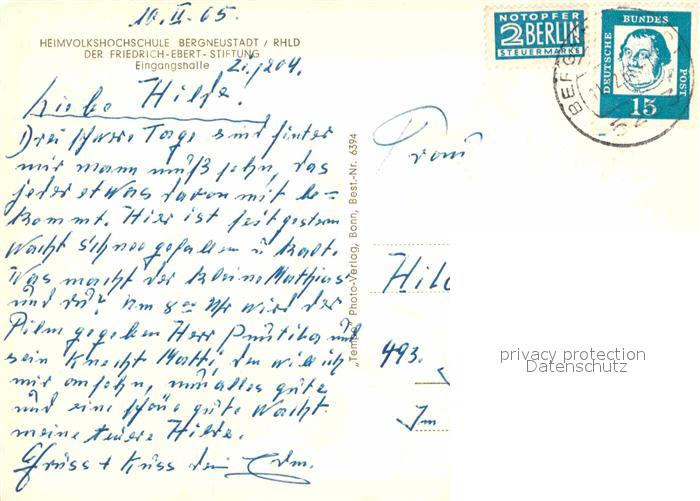 10.II.65.
HEIMVOLKSHOCHSCHULE BERGNEUSTADT / RHLD
DER FRIEDRICH-EBERT-STIFTUNG
Eingangshalle
Zi. 204.
Liebe Hilde!
Drei schwere Tage sind hinter
mir man muß sehn, das
jeder etwas davon mit be-
kommt. Hier ist seit gestern
Nacht Schnee gefallen u kalt.
Was macht der kleine Mathias
und du? Um 8 Uhr wird der
Film gegeben Herr Puntila und
sein Knecht Matti, den will ich
mir ansehn, nun alles gute
und eine schöne gute Nacht
meine teuere Hilde.
Gruss + Kuss dein
"Tempo" Photo-Verlag, Bonn, Best.-Nr. 6394
NOTOPFER
2 BERLIN
STEUERMARKE
DEUTSCHE BUNDES POST
15
BERG
Frau
Hild
493.
Im
privacy protection
Datenschutz